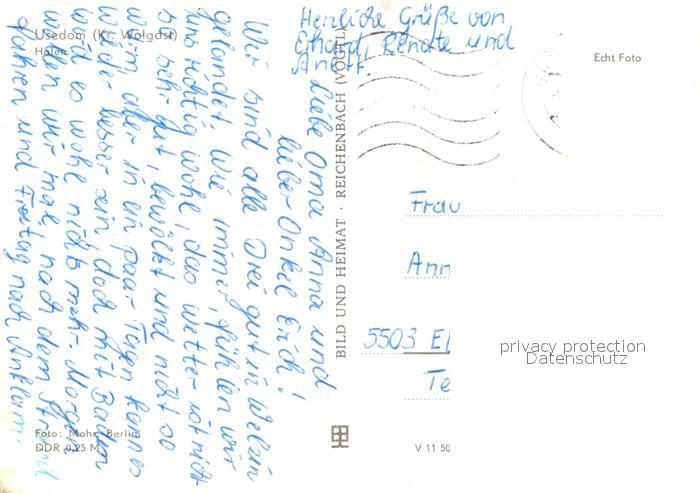 Usedom (Kr. Wolgast)
Hafen
Liebe Oma Anna und
lieber Onkel Erich!
Wir sind alle Drei gut in Wel
gelandet. Wie immer, fühlen wir
uns richtig wohl, das Wetter ist nicht
so sehr gut, bewölkt und nicht so
warm, aber in ein paar Tagen kann es
wieder besser sein, doch mit Baden
wird es wohl nichts mehr. Morgen
wollen wir mal nach dem Strand
fahren und Freitag nach Anklam.
Herzliche Grüße von
Erhard, Renate und
Anett.
Foto: Mohr, Berlin
DDR 0,25 M
BILD UND HEIMAT · REICHENBACH (VOGTL
Echt Foto
Frau
Ann
5503 El
Te
V 11 50
privacy protection
Datenschutz